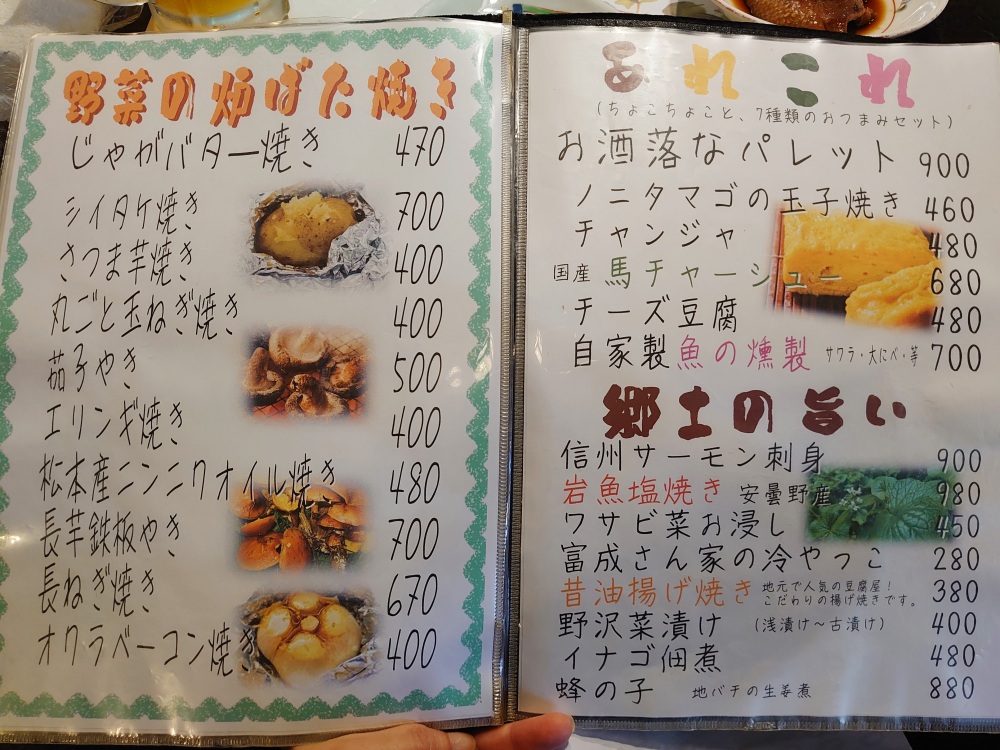 野菜の炉ばた焼き
じゃがバター焼き 470
シイタケ焼き 700
さつま芋焼き 400
丸ごと玉ねぎ焼き 400
茄子やき 500
エリンギ焼き 400
松本産ニンニクオイル焼き 480
長芋鉄板やき 700
長ねぎ焼き 670
オクラベーコン焼き 400
あれこれ
(ちょこちょこと、7種類のおつまみセット)
お洒落なパレット 900
ノニタマゴの玉子焼き 460
チャンジャ 480
国産 馬チャーシュー 680
チーズ豆腐 480
自家製魚の燻製 サワラ・大にべ・等 700
郷土の旨い
信州サーモン刺身 900
岩魚塩焼き 安曇野産 980
ワサビ菜お浸し 450
富成さん家の冷やっこ 280
昔油揚げ焼き 地元で人気の豆腐屋!こだわりの揚げ焼きです。 380
野沢菜漬け (浅漬け〜古漬け) 400
イナゴ佃煮 480
蜂の子 地バチの生姜煮 880